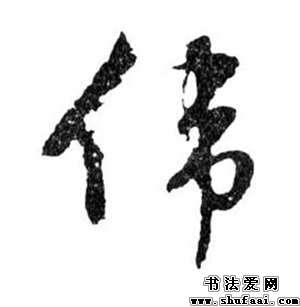 伟
书法爱网
www.shufaai.com